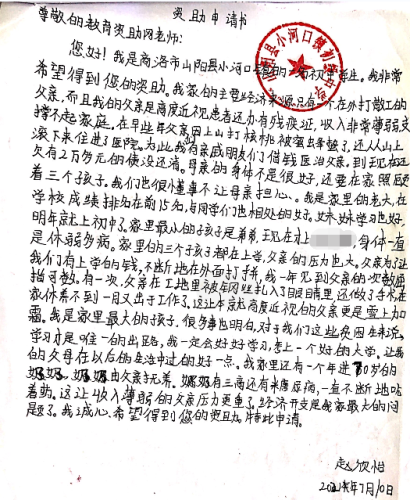 资助申请书
尊敬的教育资助网老师:
您好!我是商洛市山阳县小河口镇的一名初中学生。我非常
希望得到您的资助。我家的主要经济来源只有在外打散工的
父亲,而且我的父亲是高度近视患者还办有残疾证,收入非常薄弱支
撑不起家庭。在早些年父亲因上山打核桃被蜇晕了,还从山上
滚下来住进了医院。为此我向亲戚朋友们借钱医治父亲。到现在还
欠有2万多元的债没还清。母亲的身体不是很好,还要在家照顾
着三个孩子。我们也很懂事不让母亲担心。我是家里的老大,在
学校成绩排名在前15名,与同学们也相处的好。妹妹学习也好,
明年就上初中了。家里最小的孩子是弟弟,现在才上 ,身体一直
是体弱多病。家里的三个孩子都在上学,父亲的压力也大。父亲为了让
我们有上学的钱,不断地在外面打拼,我一年见到父亲的次数屈
指可数。有一次,父亲在工地里被扎入了眼睛里还做了手术,在
家休养不到一月又出去工作了。这让本就高度近视的父亲更是雪上加
霜。我是家里最大的孩子,很多事也明白,对于我们这些贫困生来说,
学习才是唯一的出路,我一定会好好学习,考上一个好的大学,让我
的父母在以后的生活中过的好一点。我家里还有一个年过80岁的
奶奶,奶奶由父亲养着。奶奶有三高还有糖尿病,一直不断地吃
着药。这让收入薄弱的父亲压力更重了。经济开支是我家最大的问
题了。我诚心希望得到您的资助,特此申请。
赵欣怡
2021年7月10日